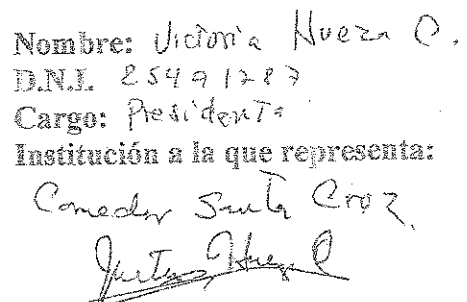 Nombre: Victoria Hueza C.
D.N.I. 25491287
Cargo: Presidenta
Institución a la que representa:
Comedor Santa Cruz